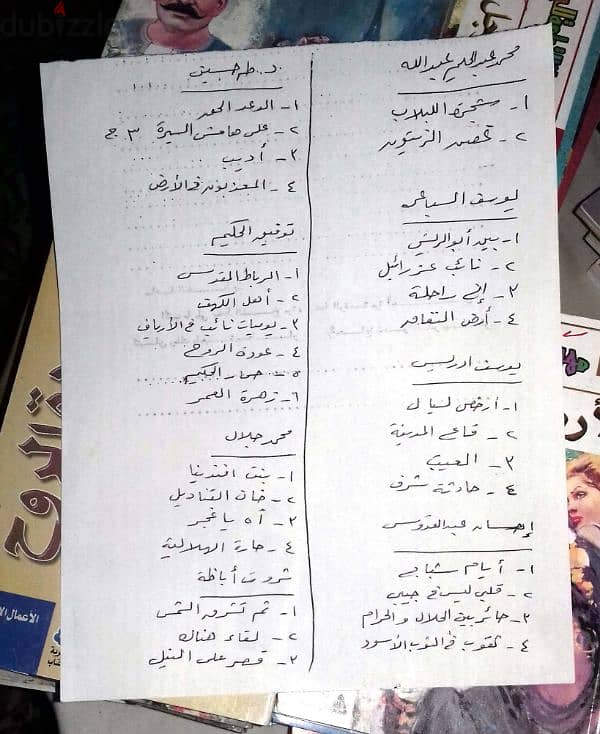 dubizzle
محمد عبد الحليم عبد الله
١- شجرة اللبلاب
٢- غصن الزيتون
يوسف السباعى
١- بين أبو الريش
٢- نائب عزرائيل
٣- إنى راحلة
٤- أرض النفاق
يوسف ادريس
١- أرخص ليالى
٢- قاع المدينة
٣- العيب
٤- حادثة شرف
إحسان عبد القدوس
١- أيام شبابى
٢- قلبى ليس فى جيبى
٣- حائر بين الحلال والحرام
٤- ثقوب فى الثوب الأسود
د. طه حسين
١- الوعد الحق
٢- على هامش السيرة ٣ ج
٣- أديب
٤- المعذبون فى الأرض
توفيق الحكيم
١- الرباط المقدس
٢- أهل الكهف
٣- يوميات نائب فى الأرياف
٤- عودة الروح
٥- حمار الحكيم
٦- زهرة العمر
محمد جلال
١- بنت افندينا
٢- خان القناديل
٣- آه يا غجر
٤- حارة الهلالية
ثروت أباظة
١- ثم تشرق الشمس
٢- لقاء هناك
٣- قصر على النيل
الروح
الأعمال